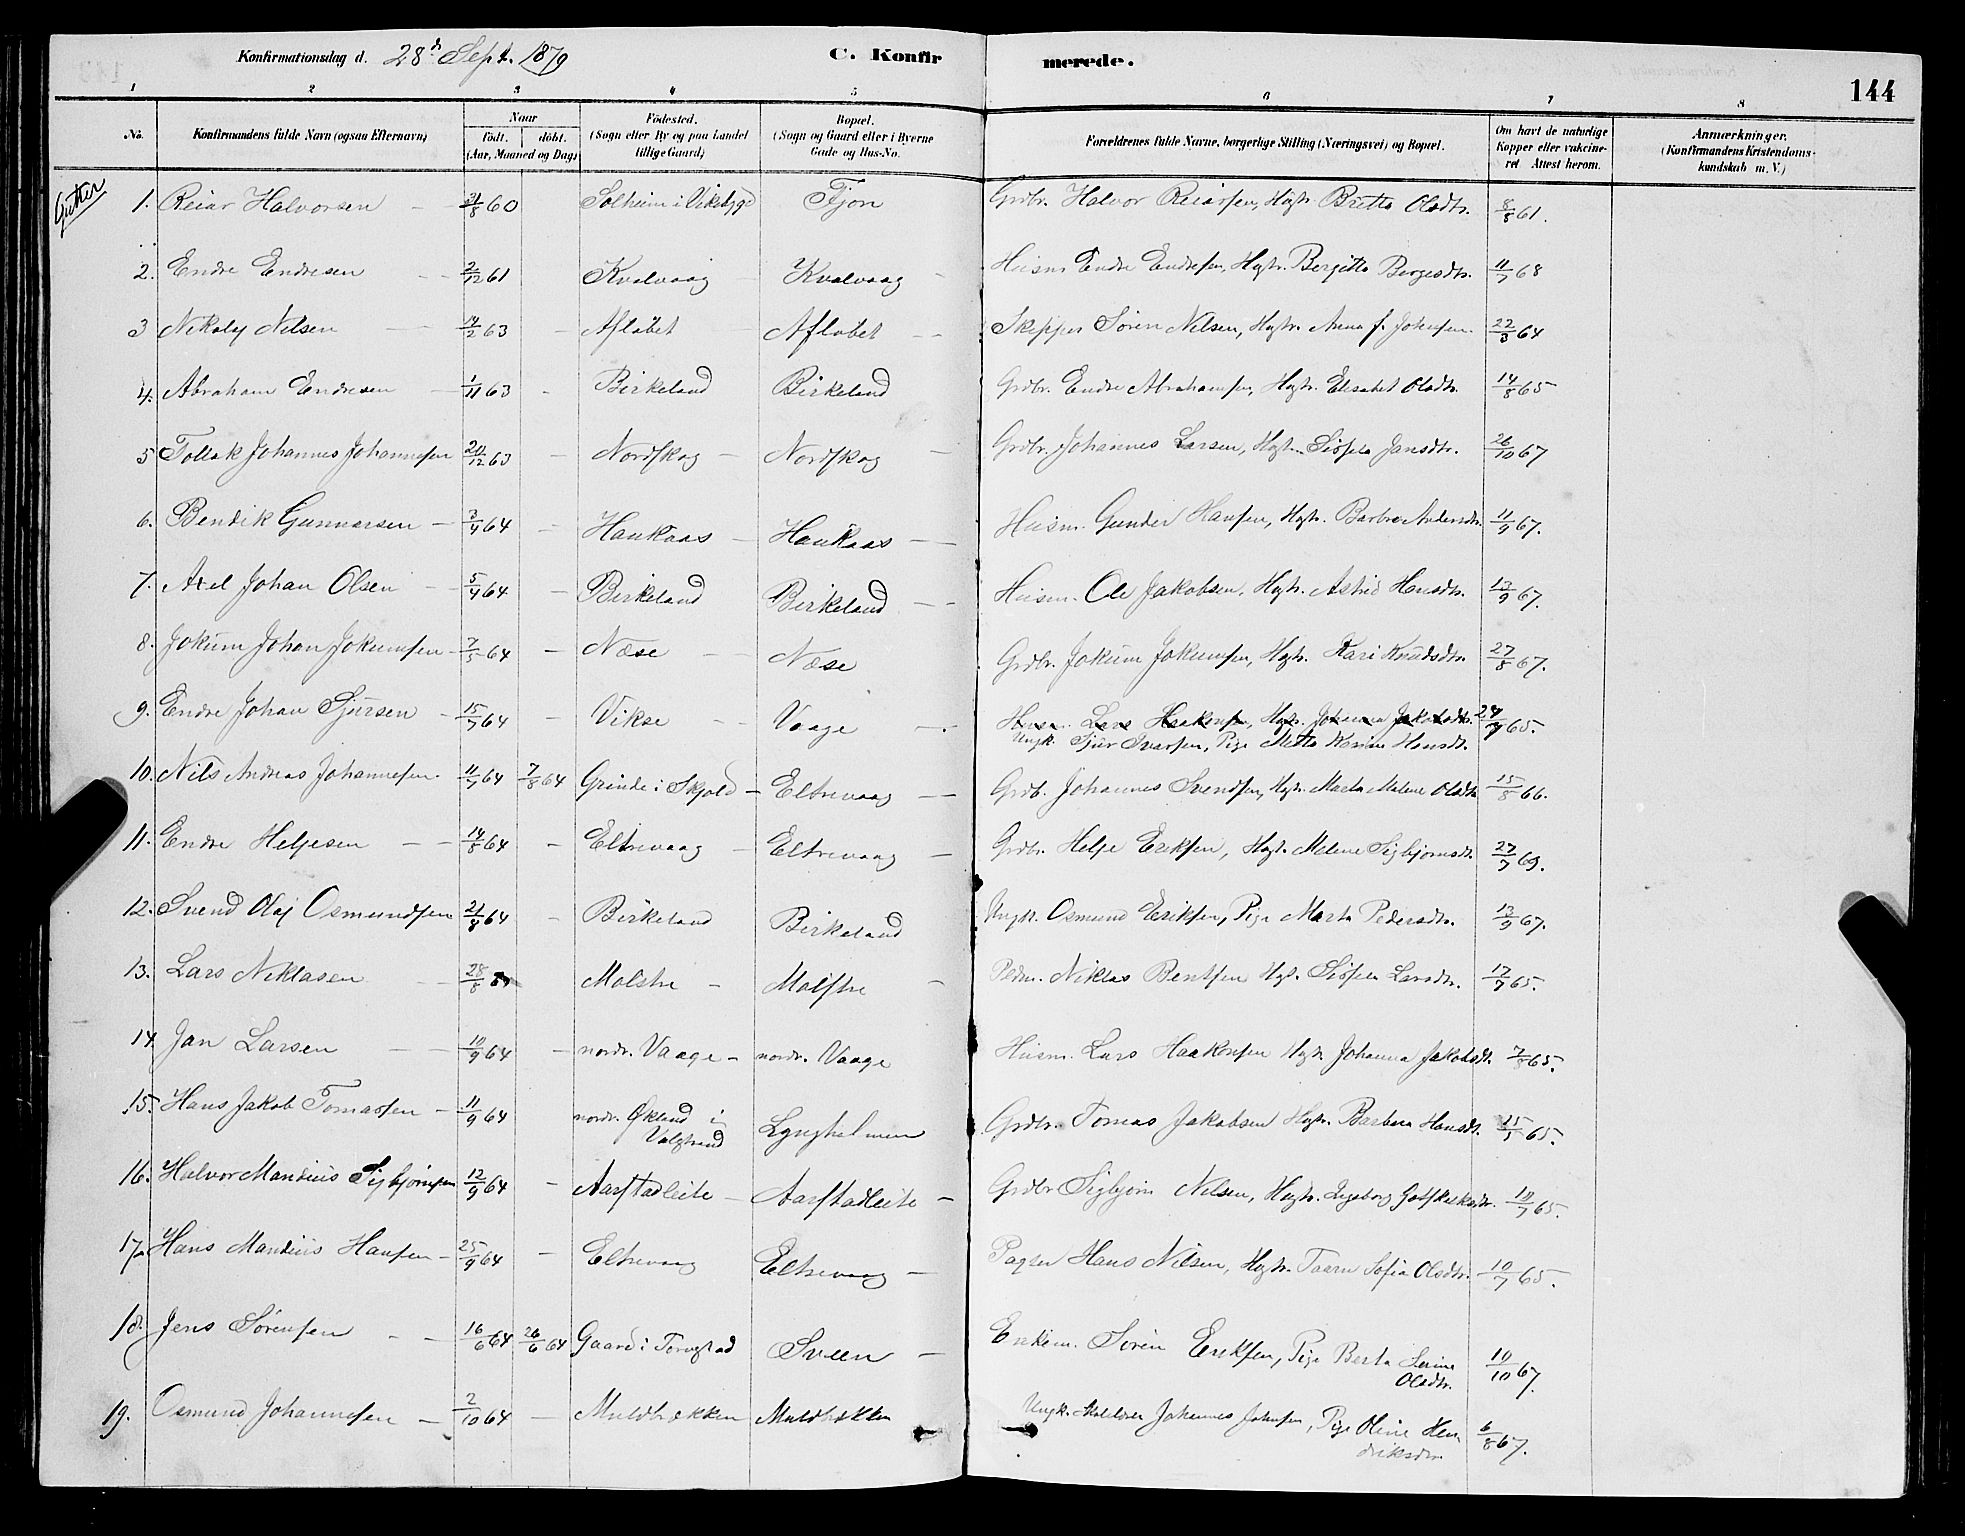 Konfirmationsdag d. 28de Sept. 1879 C. Konfirmerede. 144
1 2 3 4 5 6 7 8
No. Konfirmandens fulde Navn (ogsaa Efternavn) Naar født. døbt. (Aar, Maaned og Dag) Fødested. (Sogn eller By og paa Landet tillige Gaard) Bopæl. (Sogn og Gaard eller i Byerne Gade og Hus-No. Forældrenes fulde Navne, borgerlige Stilling (Næringsvei) og Bopæl. Om havt de naturlige Kopper eller vaccineret Attest herom. Anmærkninger. (Konfirmandens Kristendomskundskab m. V.)
Gutter
1. Reiar Halvorsen 31/8 60 Solheim i Vikebygd Fjon Grdbr. Halvor Reiarsen, Hgtr. Britta Olsdtr. 8/8 61.
2. Endre Endresen 2/12 61 Kvalvaag Kvalvaag Husm. Endre Endresen, Hgtr. Bergitta Borgesdtr. 11/7 68
3 Nikolaj Nilsen 14/2 63 Afløbet Afløbet Skipper Søren Nilsen, Hgtr. Anna f. Johnsen. 22/3 64
4. Abraham Endresen 1/11 63 Birkeland Birkeland Grdbr. Endre Abrahamsen, Hgtr. Elisabet Olsdtr. 14/8 65
5 Tollak Johannes Johannesen 20/12 63 Nordskog Nordskog Grdbr. Johannes Larsen, Hgtr. Siøfia Jansdtr. 26/10 67
6. Bendik Gunnarsen 3/4 64 Haukaas Haukaas Husm. Gunder Hansen, Hgtr. Barbro Andersdtr. 11/9 67.
7. Axel Johan Olsen 5/4 64 Birkeland Birkeland Husm. Ole Jakobsen, Hgtr. Astrid Hansdtr. 13/9 67.
8. Jokum Johan Jokumsen 7/5 64 Næse Næse Grdbr. Jokum Jokumsen, Hgtr. Kari Knudsdtr. 27/8 67.
9. Endre Johan Sjursen 15/7 64 Vikse Vaage Husm. Lars Haakonsen, Hgtr. Johanna Jakobsdtr. 24/7 65.
Ungk. Sjur Ivarsen, Pige Mette Karine Hansdtr.
10. Nils Andreas Johannesen 11/7 64 7/8 64 Grinde i Skjold Eltrevaag Grdb. Johannes Svendsen, Hgtr. Marta Malene Olsdtr. 15/8 66.
11. Endre Heljesen 14/8 64 Eltrevaag Eltrevaag Grdbr. Helje Eriksen, Hgtr. Melene Sigbjørnsdtr. 27/7 69.
12. Svend Olaj Osmundsen 21/8 64 Birkeland Birkeland Ungk. Osmund Eriksen, Pige Marta Pedersdtr. 13/9 67.
13. Lars Niklasen 28/8 Molstre Molstre Niklas Bentsen Hgtr. Siøfia Larsdtr. 17/7 65.
14. Jan Larsen 10/9 64 nordr. Vaage nordr. Vaage Husm. Lars Haakonsen Hgtr. Johanna Jakobsdtr. 7/8 65.
15. Hans Jakob Tomassen 11/9 64 nordr. Økland i Valestrand Lynghelmen Grdbr. Tomas Jakobsen Hgtr. Barbara Hansdtr. 15/5 65.
16. Halvor Mandius Sigbjørnsen 12/9 64 Aarstadleite Aarstadleite Grdbr Sigbjørn Nilsen, Hgtr. Ingeborg Gotskalksdtr. 10/7 65.
17. Hans Mandius Hansen 25/9 64 Eltrevaag Eltrevaag Hans Nilsen, Hgtr. Taarn Sofia Olsdtr. 10/7 65.
18. Jens Sørensen 16/6 64 26/6 64 Gaard i Torvestad Sveen Enkem. Søren Eriksen, Pige Berta Serine Olsdtr. 10/10 67.
19. Osmund Johannesen 2/10 64 Muldbrækken Muldbrækken Ungk. Johannes Johnsen, Pige Oline Hendriksdtr. 6/8 67.